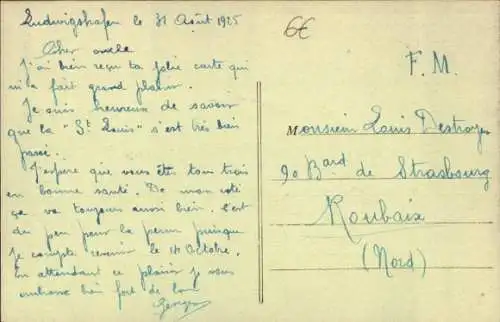 Ludwigshafen le 31 Août 1925
Cher oncle
J'ai bien reçu ta jolie carte qui
m'a fait grand plaisir.
Je suis heureux de savoir
que la "St Louis" s'est très bien
passé.
J'espère que vous êtes tous trois
en bonne santé. De mon côté
ça va toujours aussi bien. C'est
du peu pour la perm puisque
je compte revenir le 14 Octobre.
En attendant ce plaisir je vous
embrasse bien fort de loin
6€
F. M.
Monsieur Louis Destroyer
90 Bard de Strasbourg
Roubaix
(Nord)